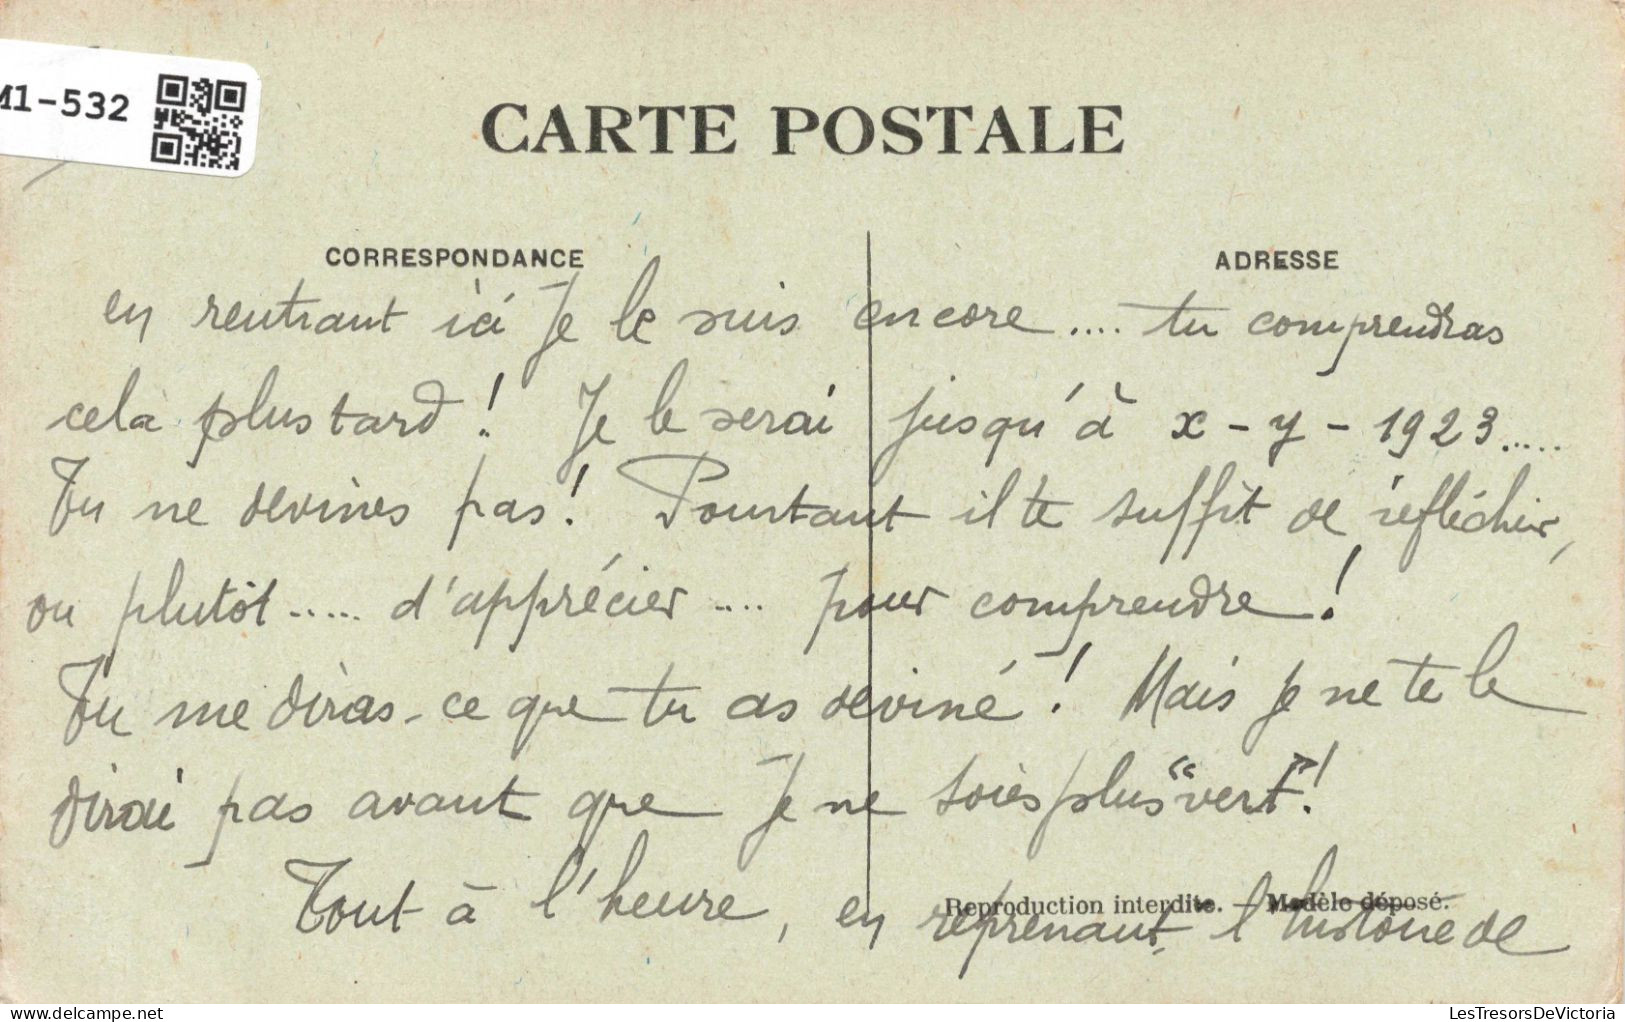 M1-532
CARTE POSTALE
CORRESPONDANCE
ADRESSE
en rentrant ici Je le suis encore.... tu comprendras
cela plus tard! Je le serai jusqu'à x - y - 1923.....
Tu ne devines pas! Pourtant il te suffit de réfléchir,
ou plutôt..... d'apprécier.... pour comprendre!
Tu me diras - ce que tu as deviné! Mais je ne te le
dirai pas avant que Je ne sois plus "vert"!
Tout à l'heure, en reprenant l'histoire de
Reproduction interdite. — Modèle déposé.
delcampe.net
LesTresorsDeVictoria